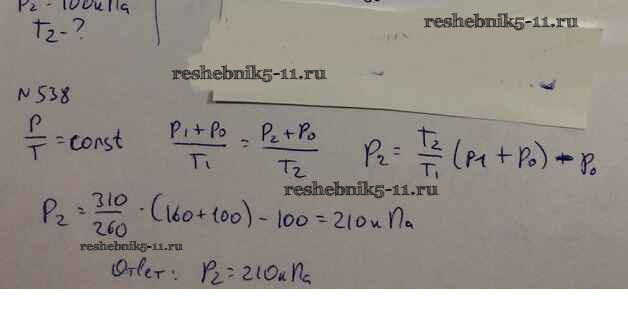 P₂ - 100кПа
T₂ - ?
reshebnik5-11.ru
reshebnik5-11.ru
N 538
P/T = const (P₁ + P₀)/T₁ = (P₂ + P₀)/T₂ P₂ = T₂/T₁ (P1 + P₀) - P₀
reshebnik5-11.ru
P₂ = 310/260 · (160+100) - 100 = 210кПа
reshebnik5-11.ru
Ответ: P₂ = 210кПа